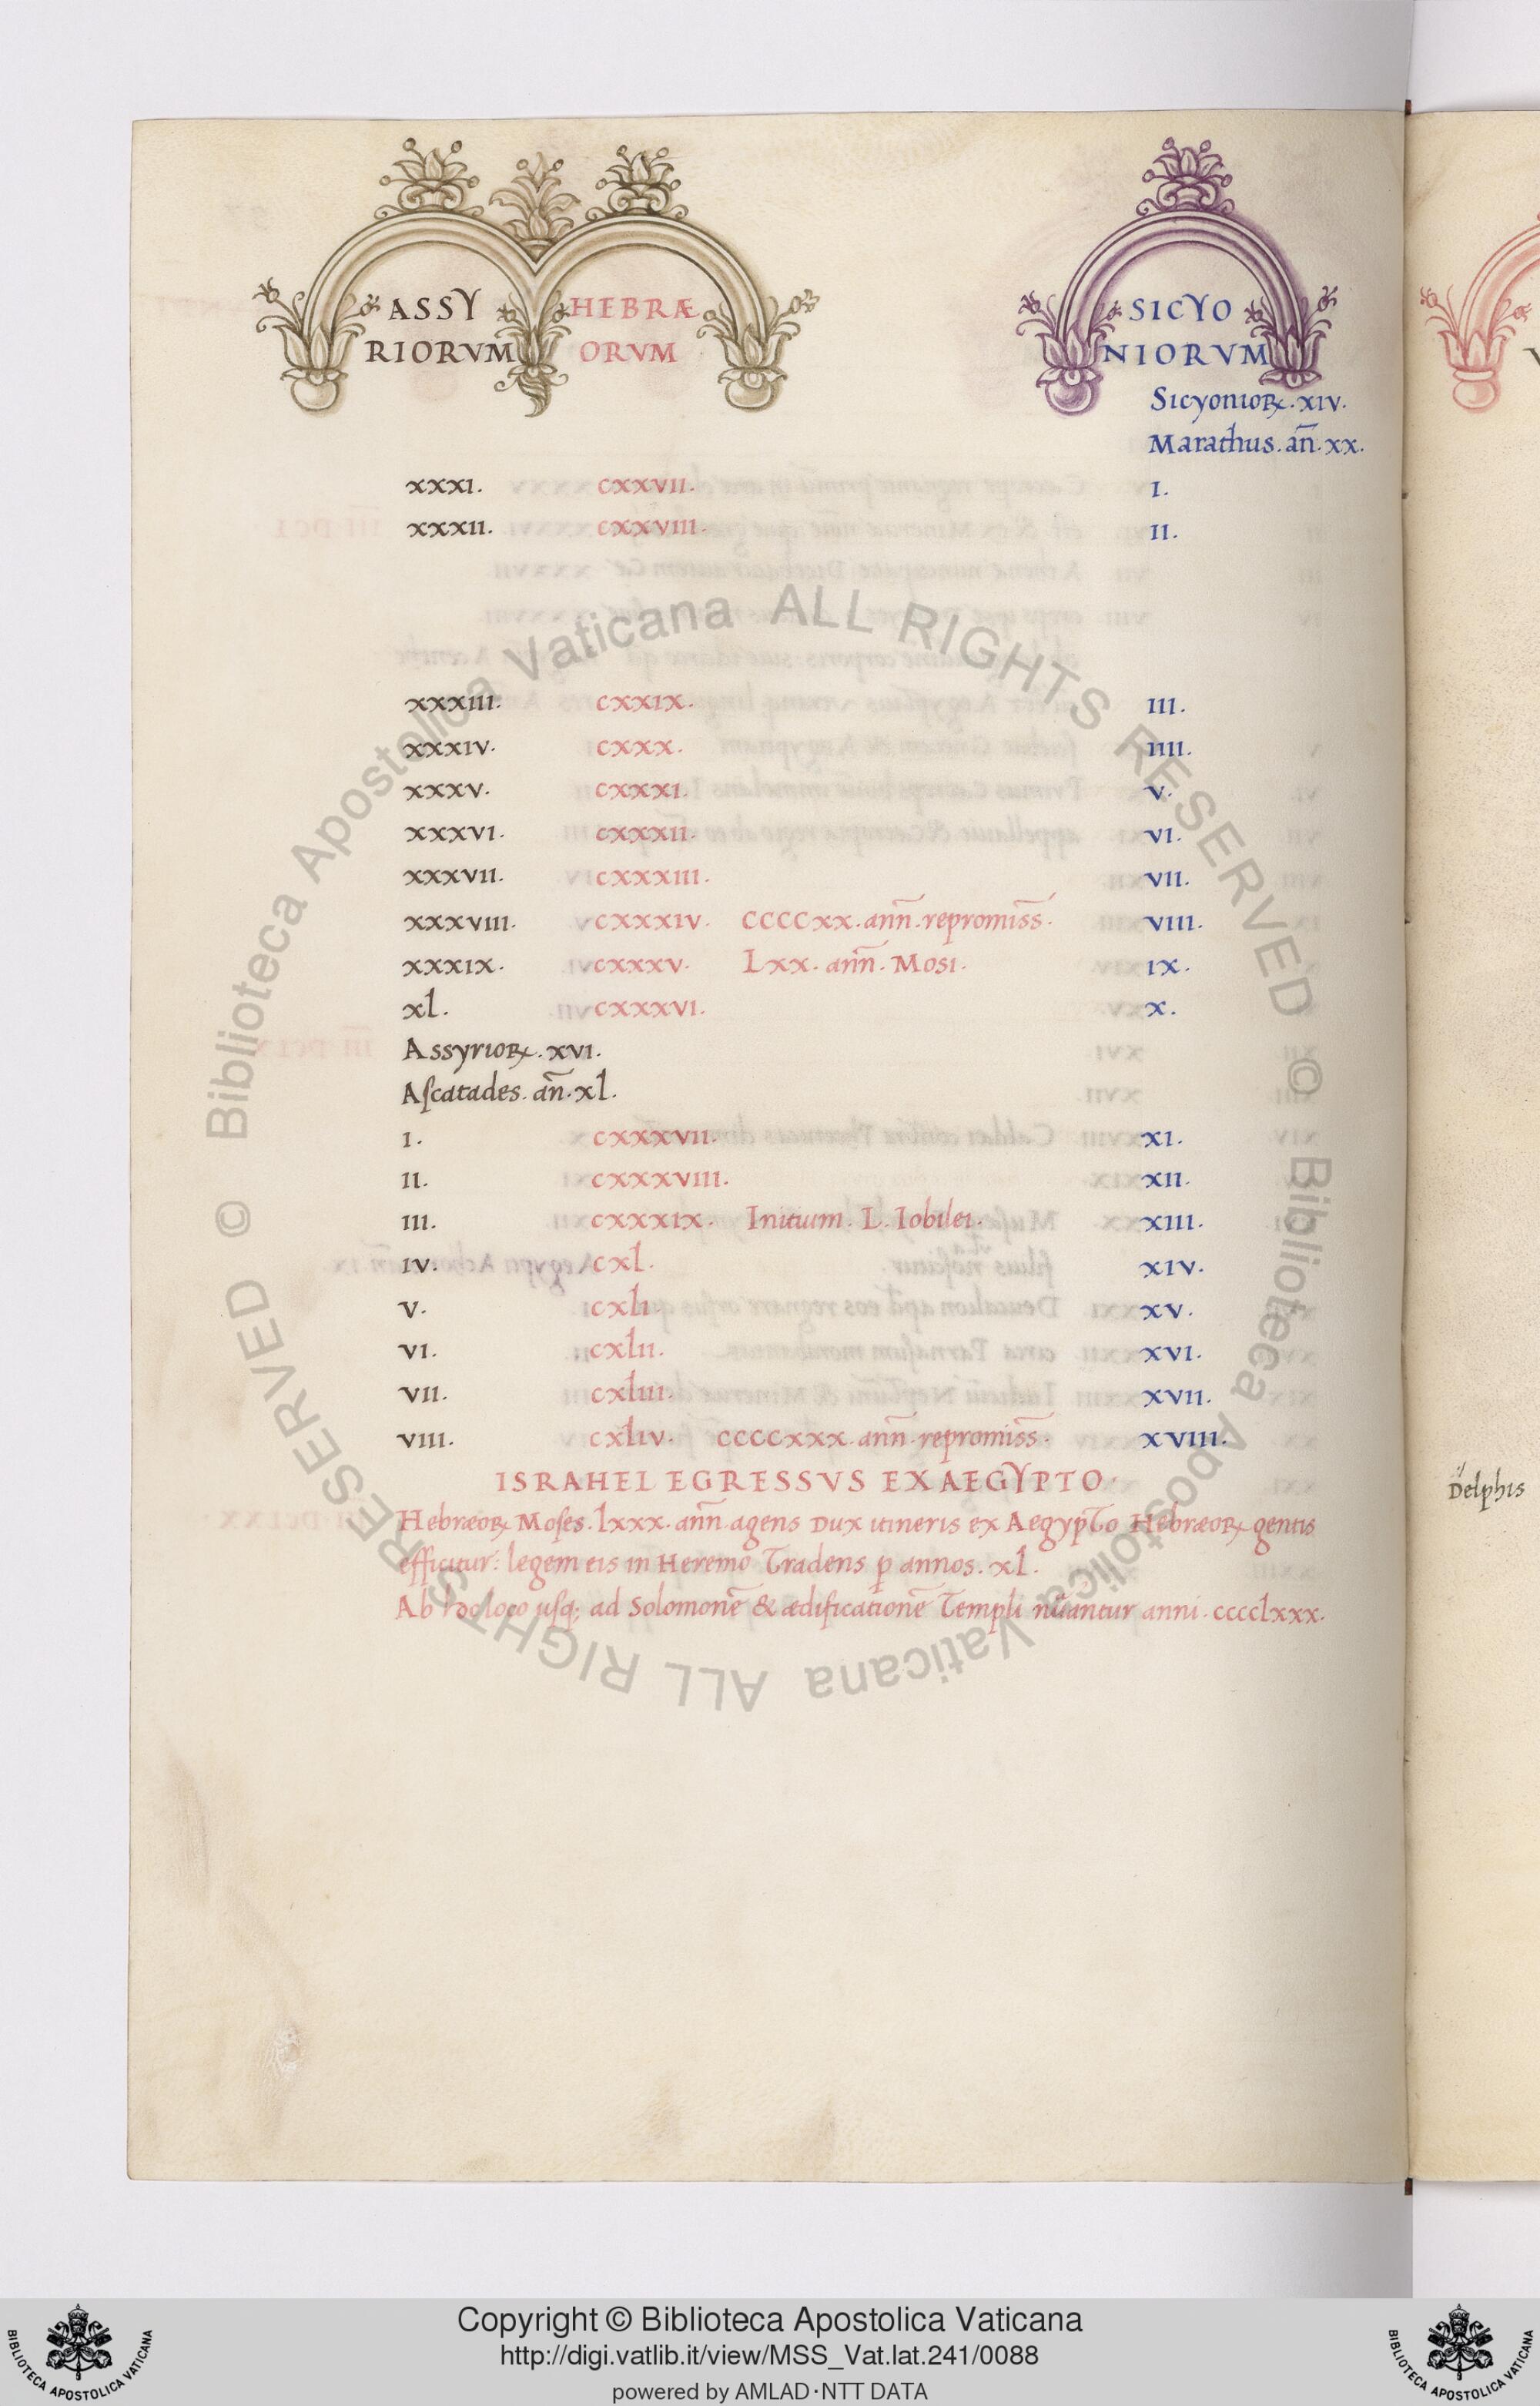 ASSY HEBRÆ SICYO
RIORVM ORVM NIORVM
Sicyonioꝝ. xiv.
Marathus. an̄. xx.
xxxi. cxxvii. i.
xxxii. cxxviii. ii.
xxxiii. cxxix. iii.
xxxiv. cxxx. iiii.
xxxv. cxxxi. v.
xxxvi. cxxxii. vi.
xxxvii. cxxxiii. vii.
xxxviii. cxxxiv. ccccxx. ann̄. repromiss̄. viii.
xxxix. cxxxv. Lxx. ann̄. Mosi. ix.
xl. cxxxvi. x.
Assyrioꝝ. xvi.
Aſcatades. an̄. xl.
i. cxxxvii. xi.
ii. cxxxviii. xii.
iii. cxxxix. Initium. L. Iobilei. xiii.
iv. cxl. xiv.
v. cxli. xv.
vi. cxlii. xvi.
vii. cxliii. xvii.
viii. cxliv. ccccxxx. ann̄. repromiss̄. xviii.
ISRAHEL EGRESSVS EX AEGYPTO.
Hebræoꝝ Moſes. lxxx. ann̄. agens Dux itineris ex Aegypto Hebræoꝝ gentis
efficitur: legem eis in Heremo Tradens ꝑ annos. xl.
Ab hoc loco uſq; ad Solomonē & ædificationē Templi nūantur anni. cccclxxx.
Delphis
Biblioteca Apostolica Vaticana ALL RIGHTS RESERVED ©
Biblioteca Apostolica Vaticana ALL RIGHTS RESERVED ©
Copyright © Biblioteca Apostolica Vaticana
http://digi.vatlib.it/view/MSS_Vat.lat.241/0088
powered by AMLAD·NTT DATA
BIBLIOTECA APOSTOLICA VATICANA
BIBLIOTECA APOSTOLICA VATICANA